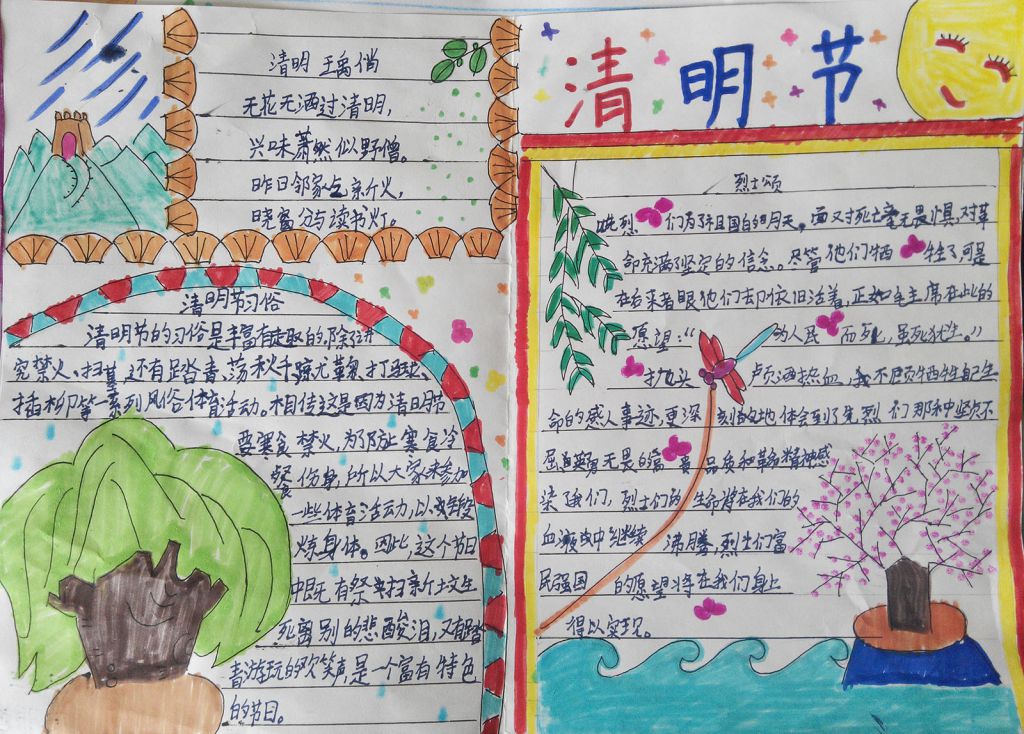 清明 王禹偁
无花无酒过清明，
兴味萧然似野僧。
昨日邻家乞新火，
晓窗分与读书灯。
清明节习俗
清明节的习俗是丰富有趣的，除讲
究禁火、扫墓，还有踏青、荡秋千、
插柳等一系列风俗体育活动。相传这是因为清明节
要寒食禁火，为了防止寒食冷
餐伤身，所以大家来参加
一些体育活动，以锻
炼身体。因此，这个节日
中既有祭扫新坟生
死离别的悲酸泪，又有踏
青游玩的欢笑声，是一个富有特色
的节日。
清明节
烈士颂
先烈们为了祖国的明天，面对死亡毫无畏惧，对革
命充满了坚定的信念。尽管他们牺牲了，可是
在后来者眼里他们却依旧活着，正如毛主席在此的
愿望：“为人民而死，虽死犹生。”
抛头颅洒热血，不顾牺牲自己生
命的感人事迹，更深刻的地体会到了先烈们那种坚贞不
屈英勇无畏的高贵品质和革命精神感
染了我们，烈士们的生命将在我们的
血液中继续沸腾，烈士们富
民强国的愿望将在我们身上
得以实现。